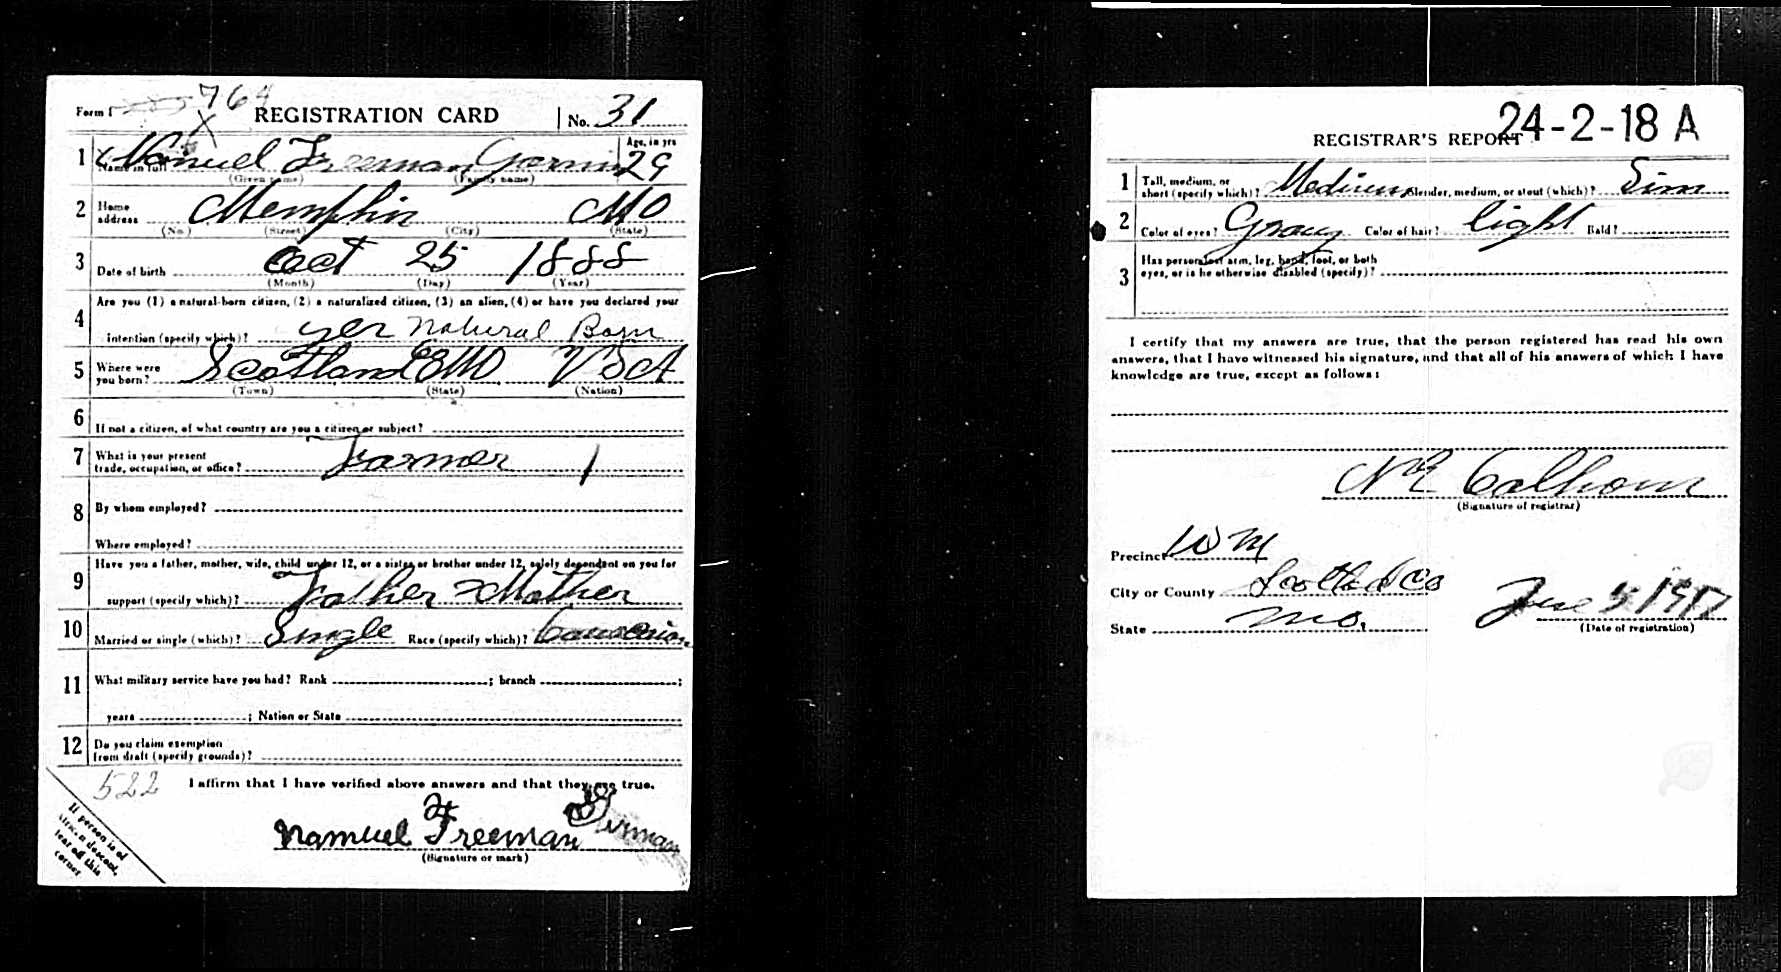 Form 1 764 REGISTRATION CARD No. 31
X
1 Namuel Freeman Age, in yrs 29
Name in full (Given name) (Family name)
2 Home address Memphis MO
(No.) (Street) (City) (State)
3 Date of birth Oct 25 1888
(Month) (Day) (Year)
4 Are you (1) a natural-born citizen, (2) a naturalized citizen, (3) an alien, (4) or have you declared your
intention (specify which)? yes Natural Born
5 Where were you born? Scotland MO USA
(Town) (State) (Nation)
6 If not a citizen, of what country are you a citizen or subject?
7 What is your present trade, occupation, or office? Farmer 1
8 By whom employed?
Where employed?
9 Have you a father, mother, wife, child under 12, or a sister or brother under 12, solely dependent on you for
support (specify which)? Father Mother
10 Married or single (which)? Single Race (specify which)? Caucasian
11 What military service have you had? Rank ; branch ;
years ; Nation or State
12 Do you claim exemption from draft (specify grounds)?
I affirm that I have verified above answers and that they are true.
522
Namuel Freeman
(Signature or mark)
If person is of African descent, tear off this corner
24-2-18 A
REGISTRAR'S REPORT
1 Tall, medium, or short (specify which)? Medium Slender, medium, or stout (which)? Slim
2 Color of eyes? Gray Color of hair? light Bald?
3 Has person lost arm, leg, hand, foot, or both
eyes, or is he otherwise disabled (specify)?
I certify that my answers are true, that the person registered has read his own
answers, that I have witnessed his signature, and that all of his answers of which I have
knowledge are true, except as follows:
Calhoun
(Signature of registrar)
Precinct W M
City or County Scotland Co
State Mo. June 5 1917
(Date of registration)